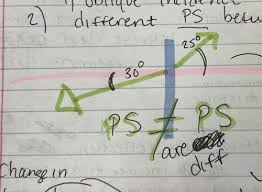 if oblique incidence
2) different PS betw
25°
30°
PS ≠ PS
are
diff
Change in